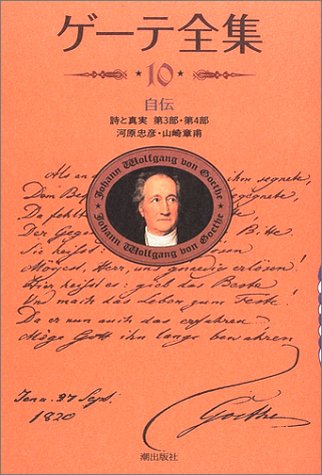 ゲーテ全集
10
自伝
詩と真実 第3部・第4部
河原忠彦・山崎章甫
Johann Wolfgang von Goethe
Johann Wolfgang von Goethe
Als an
ihm segnete,
Dem
Da fehlte
Der
Bitte.
Sie heisst:
Herr, uns gnaedig erlösen!
Hier heisst es: gieb das Beste
Und mach das Leben zum Feste!
Da er nun auch das erfahren
Möge Gott ihn lange bewahren
Jena. 27 Sept.
1820
Goethe
潮出版社